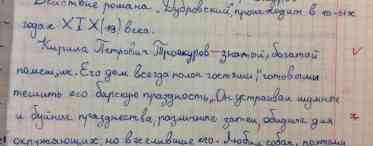 Действие романа „Дубровский" происходит в 10-ых
годах XIX (19) века.
Кирила Петрович Троекуров – знатой, богатой
помещик. Его дом всегда полон гостями, „готовыми
тешить его барскую праздность". Он устраивал шумные
и буйные празднества, различные затеи, обидные для
окружающих, но веселившие его. Любил собак, поэтому